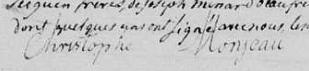 Seguen freres, de Joseph Menard beaufre
dont quelques uns ont signé avec nous, les
Christophe Monjeau